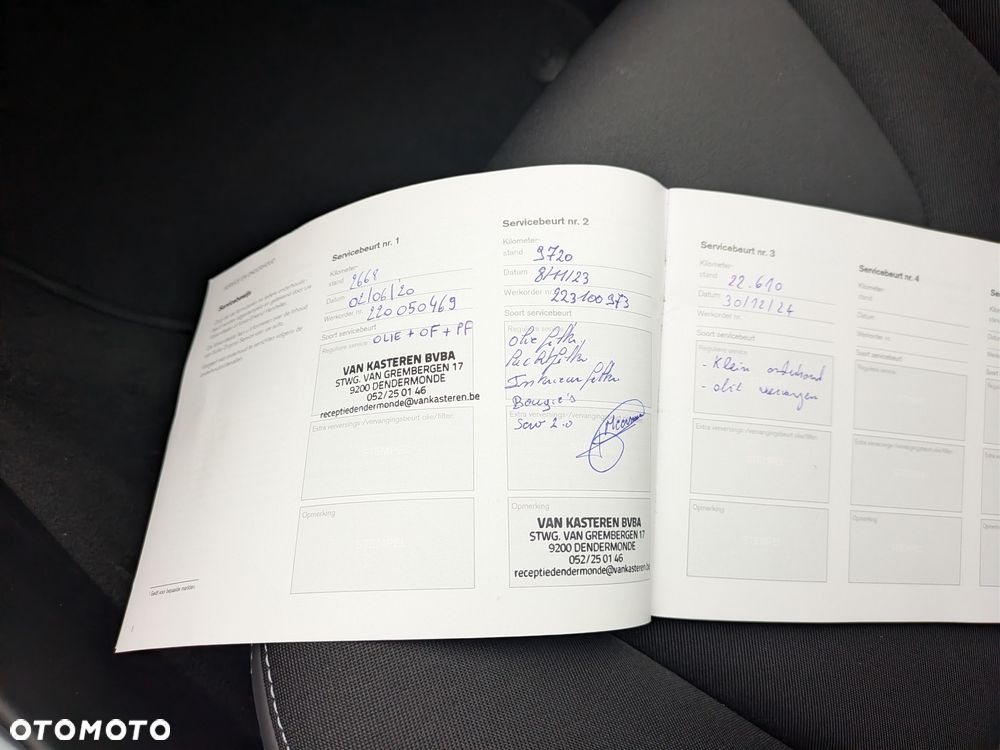 SERVICE EN ONDERHOUD
Servicebewijs
Servicebeurt nr. 1
Kilometer-
stand 2668
Datum 02/06/20
Werkorder nr. 220050469
Soort servicebeurt
Reguliere service OLIE + OF + PF
VAN KASTEREN BVBA
STWG. VAN GREMBERGEN 17
9200 DENDERMONDE
052/25 01 46
receptiedendermonde@vankasteren.be
Extra verversings-/vervangingsbeurt olie/filter
STEMPEL
Opmerking
STEMPEL
Servicebeurt nr. 2
Kilometer-
stand 9720
Datum 8/11/23
Werkorder nr. 223100973
Soort servicebeurt
Reguliere service
Olie filter
Luchtfilter
Interieurfilter
Bougie's
Extra verversings-/vervangingsbeurt
Serv 2.0
Opmerking
VAN KASTEREN BVBA
STWG. VAN GREMBERGEN 17
9200 DENDERMONDE
052/25 01 46
receptiedendermonde@vankasteren.be
Servicebeurt nr. 3
Kilometer-
stand 22.610
Datum 30/12/24
Werkorder nr.
Soort servicebeurt
Reguliere service
- Klein onderhoud
- olie vervangen
Extra verversings-/vervangingsbeurt olie/filter
STEMPEL
Opmerking
STEMPEL
Servicebeurt nr. 4
Kilometer-
stand
Datum
Werkorder nr.
Soort servicebeurt
Reguliere service
Extra verversings-/vervangingsbeurt olie/filter
STEMPEL
Opmerking
STEMPEL
¹ Geldt voor bepaalde markten.
OTOMOTO